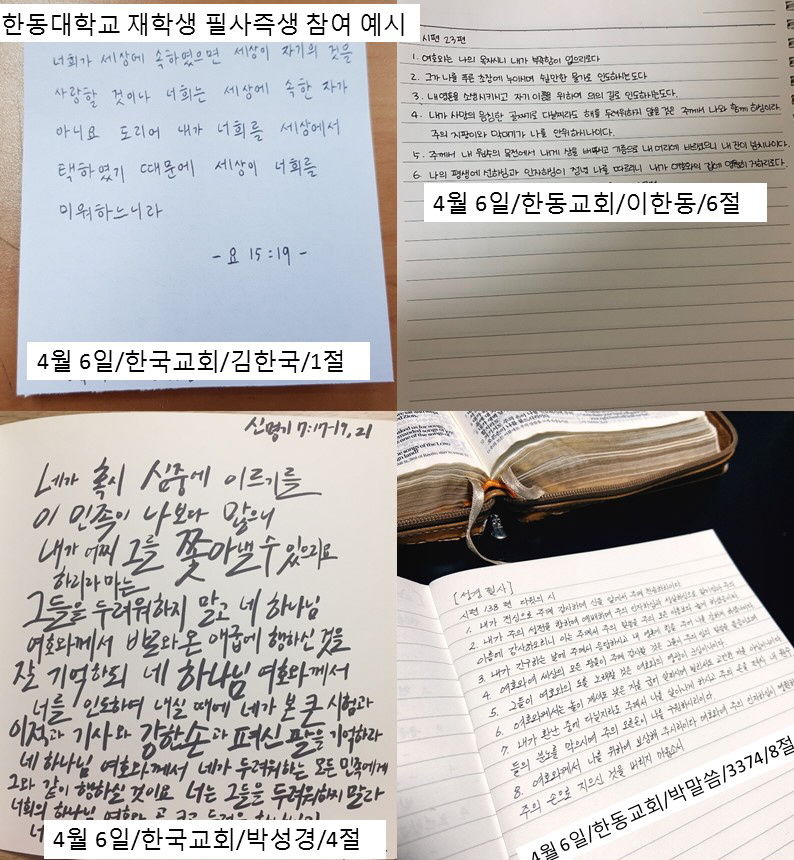 한동대학교 재학생 필사즉생 참여 예시
너희가 세상에 속하였으면 세상이 자기의 것을
사랑할 것이나 너희는 세상에 속한 자가
아니요 도리어 내가 너희를 세상에서
택하였기 때문에 세상이 너희를
미워하느니라
- 요 15:19 -
4월 6일/한국교회/김한국/1절
시편 23편
1. 여호와는 나의 목자시니 내가 부족함이 없으리로다
2. 그가 나를 푸른 초장에 누이시며 쉴만한 물가로 인도하시는도다
3. 내 영혼을 소생시키시고 자기 이름을 위하여 의의 길로 인도하시는도다.
4. 내가 사망의 음침한 골짜기로 다닐찌라도 해를 두려워하지 않을 것은 주께서 나와 함께 하심이라.
주의 지팡이와 막대기가 나를 안위하시나이다.
5. 주께서 내 원수의 목전에서 내게 상을 베푸시고 기름으로 내 머리에 바르셨으니 내 잔이 넘치나이다.
6. 나의 평생에 선하심과 인자하심이 정녕 나를 따르리니 내가 여호와의 집에 영원히 거하리로다.
4월 6일/한동교회/이한동/6절
신명기 7:17-19, 21
네가 혹시 심중에 이르기를
이 민족이 나보다 많으니
내가 어찌 그를 쫓아낼 수 있으리요
하리라마는
그들을 두려워하지 말고 네 하나님
여호와께서 바로와 온 애굽에 행하신 것을
잘 기억하되 네 하나님 여호와께서
너를 인도하여 내실 때에 네가 본 큰 시험과
이적과 기사와 강한 손과 펴신 팔을 기억하라
네 하나님 여호와께서 네가 두려워하는 모든 민족에게
그와 같이 행하실 것이요 너는 그들을 두려워하지 말라
너희의 하나님 여호와
4월 6일/한국교회/박성경/4절
[성경 필사]
시편 138편 다윗의 시
1. 내가 전심으로 주께 감사하며 신들 앞에서 주께 찬송하리이다
2. 내가 주의 성전을 향하여 예배하며 주의 인자하심과 성실하심으로 말미암아 주의
이름에 감사하오리니 이는 주께서 주의 말씀을 주의 모든 이름보다 높게 하셨음이라
3. 내가 간구하는 날에 주께서 응답하시고 내 영혼에 힘을 주어 나를 강하게 하셨나이다
4. 여호와여 세상의 모든 왕들이 주께 감사할 것은 그들이 주의 입의 말씀을 들음이오며
5. 그들이 여호와의 도를 노래할 것은 여호와의 영광이 크심이니이다
6. 여호와께서는 높이 계셔도 낮은 자를 굽어살피시며 멀리서도 교만한 자를 아심이니이다
7. 내가 환난 중에 다닐지라도 주께서 나를 살아나게 하시고 주의 손을 펴사 내 원수
들의 분노를 막으시며 주의 오른손이 나를 구원하시리이다
8. 여호와께서 나를 위하여 보상해 주시리이다 여호와여 주의 인자하심이 영원
주의 손으로 지으신 것을 버리지 마옵소서
4월 6일/한동교회/박말씀/3374/8절